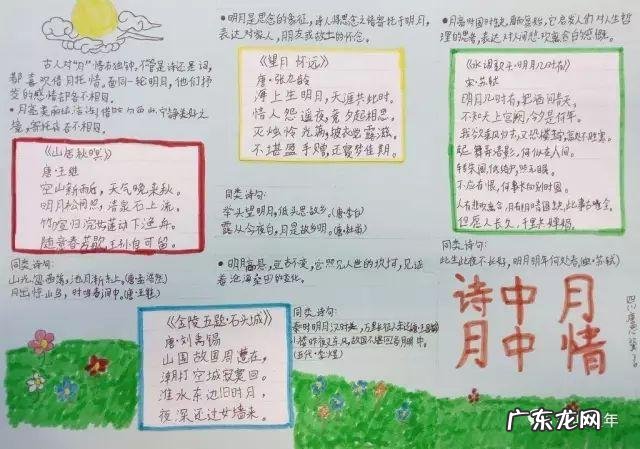 古人对"月"情有独钟，不管是诗还是词，
都喜欢借月托情。面同一轮明月，他们抒
发的感情却各不相同。
《山居秋暝》
唐·王维
空山新雨后，天气晚来秋。
明月松间照，清泉石上流。
竹喧归浣女，莲动下渔舟。
随意春芳歇，王孙自可留。
同类诗句：
山光忽西落，池月渐东上。(唐·孟浩然)
月出惊山鸟，时鸣春涧中。(唐·王维)
·明月是思念的象征，诗人将思念之情寄托于明月，
表达对家人，朋友或故土的怀念。
《望月怀远》
唐·张九龄
海上生明月，天涯共此时。
情人怨遥夜，竟夕起相思。
灭烛怜光满，披衣觉露滋。
不堪盈手赠，还寝梦佳期。
同类诗句：
举头望明月，低头思故乡。(唐·李白)
露从今夜白，月是故乡明。(唐·杜甫)
·明月高悬，亘古不变，它照见人世的坎坷，见证
着沧海桑田的变化。
《金陵五题·石头城》
唐·刘禹锡
山围故国周遭在，
潮打空城寂寞回。
淮水东边旧时月，
夜深还过女墙来。
同类诗句：
秦时明月汉时关，万里长征人未还
小楼昨夜又东风，故国不堪回首月明中。
(五代·李煜)
《水调歌头·明月几时有》
宋·苏轼
明月几时有，把酒问青天，
不知天上宫阙，今夕是何年。
我欲乘风归去，又恐琼楼玉宇，高处不胜寒。
起舞弄清影，何似在人间。
转朱阁，低绮户，照无眠。
不应有恨，何事长向别时圆
人有悲欢离合，月有阴晴圆缺，此事古难全。
但愿人长久，千里共婵娟。
同类诗句：
此生此夜不长好，明月明年何处看(宋·苏轼)
诗中月
月中情
广东龙网
年